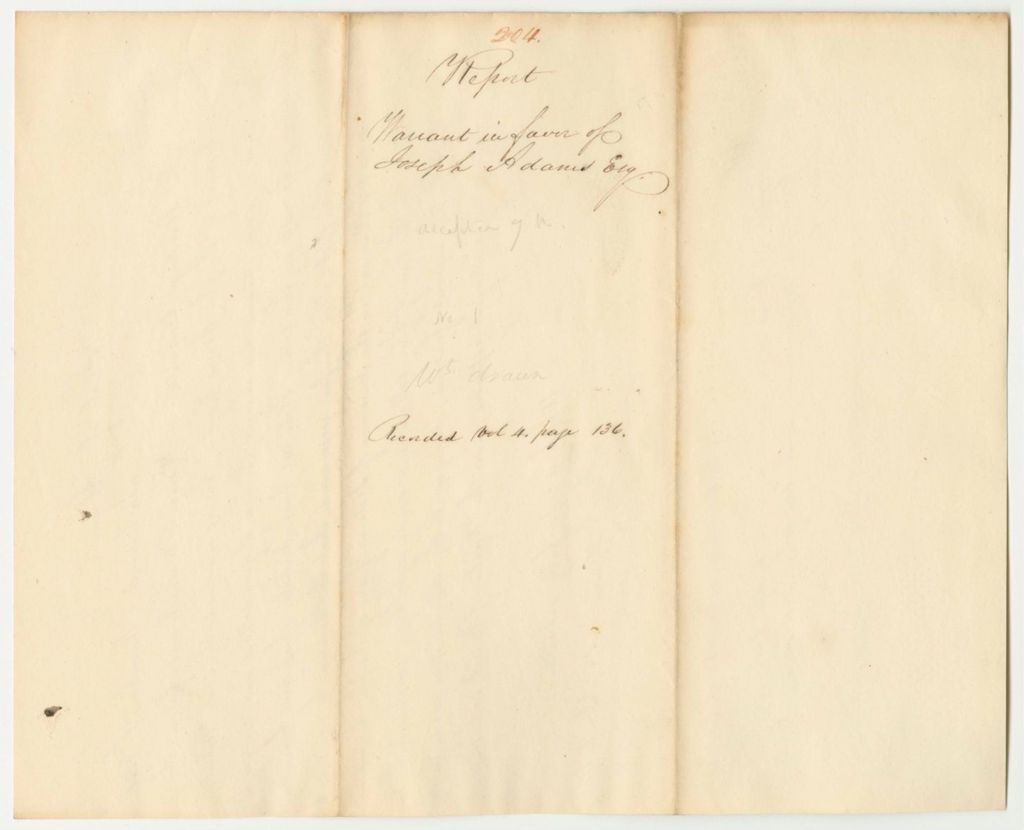 204.
Report
Warrant in favor of
Joseph Adams Esq.
No 1
Wt drawn
Recorded Vol 4. page 136.